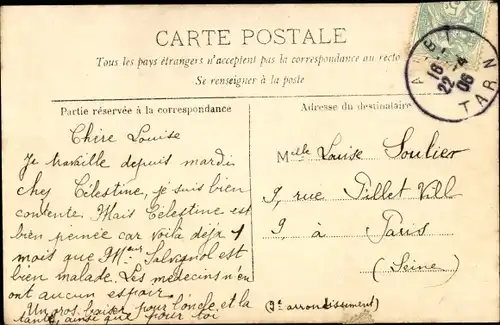 CARTE POSTALE
Tous les pays étrangers n'acceptent pas la correspondance au recto
Se renseigner à la poste
ALBI
16
22-4
06
TARN
Partie réservée à la correspondance
Adresse du destinataire
Chère Louise
Je travaille depuis mardi
chez Célestine, je suis bien
contente. Mais Célestine est
bien peinée car voilà déjà 1
mois que Mr Salvignol est
bien malade. Les médecins n'en
ont aucun espoir.
Un gros baiser pour l'oncle et la
tante, ainsi que pour toi
Melle Louise Soulier
9, rue Pillet Vill
9, à Paris
(Seine)
(9e arrondissement)